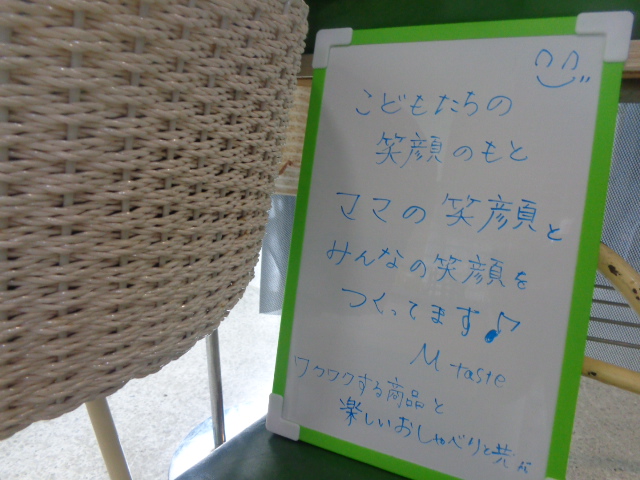 こどもたちの
笑顔のもと
ママの笑顔と
みんなの笑顔を
つくってます♪
M taste
ワクワクする商品と
楽しいおしゃべりと共に